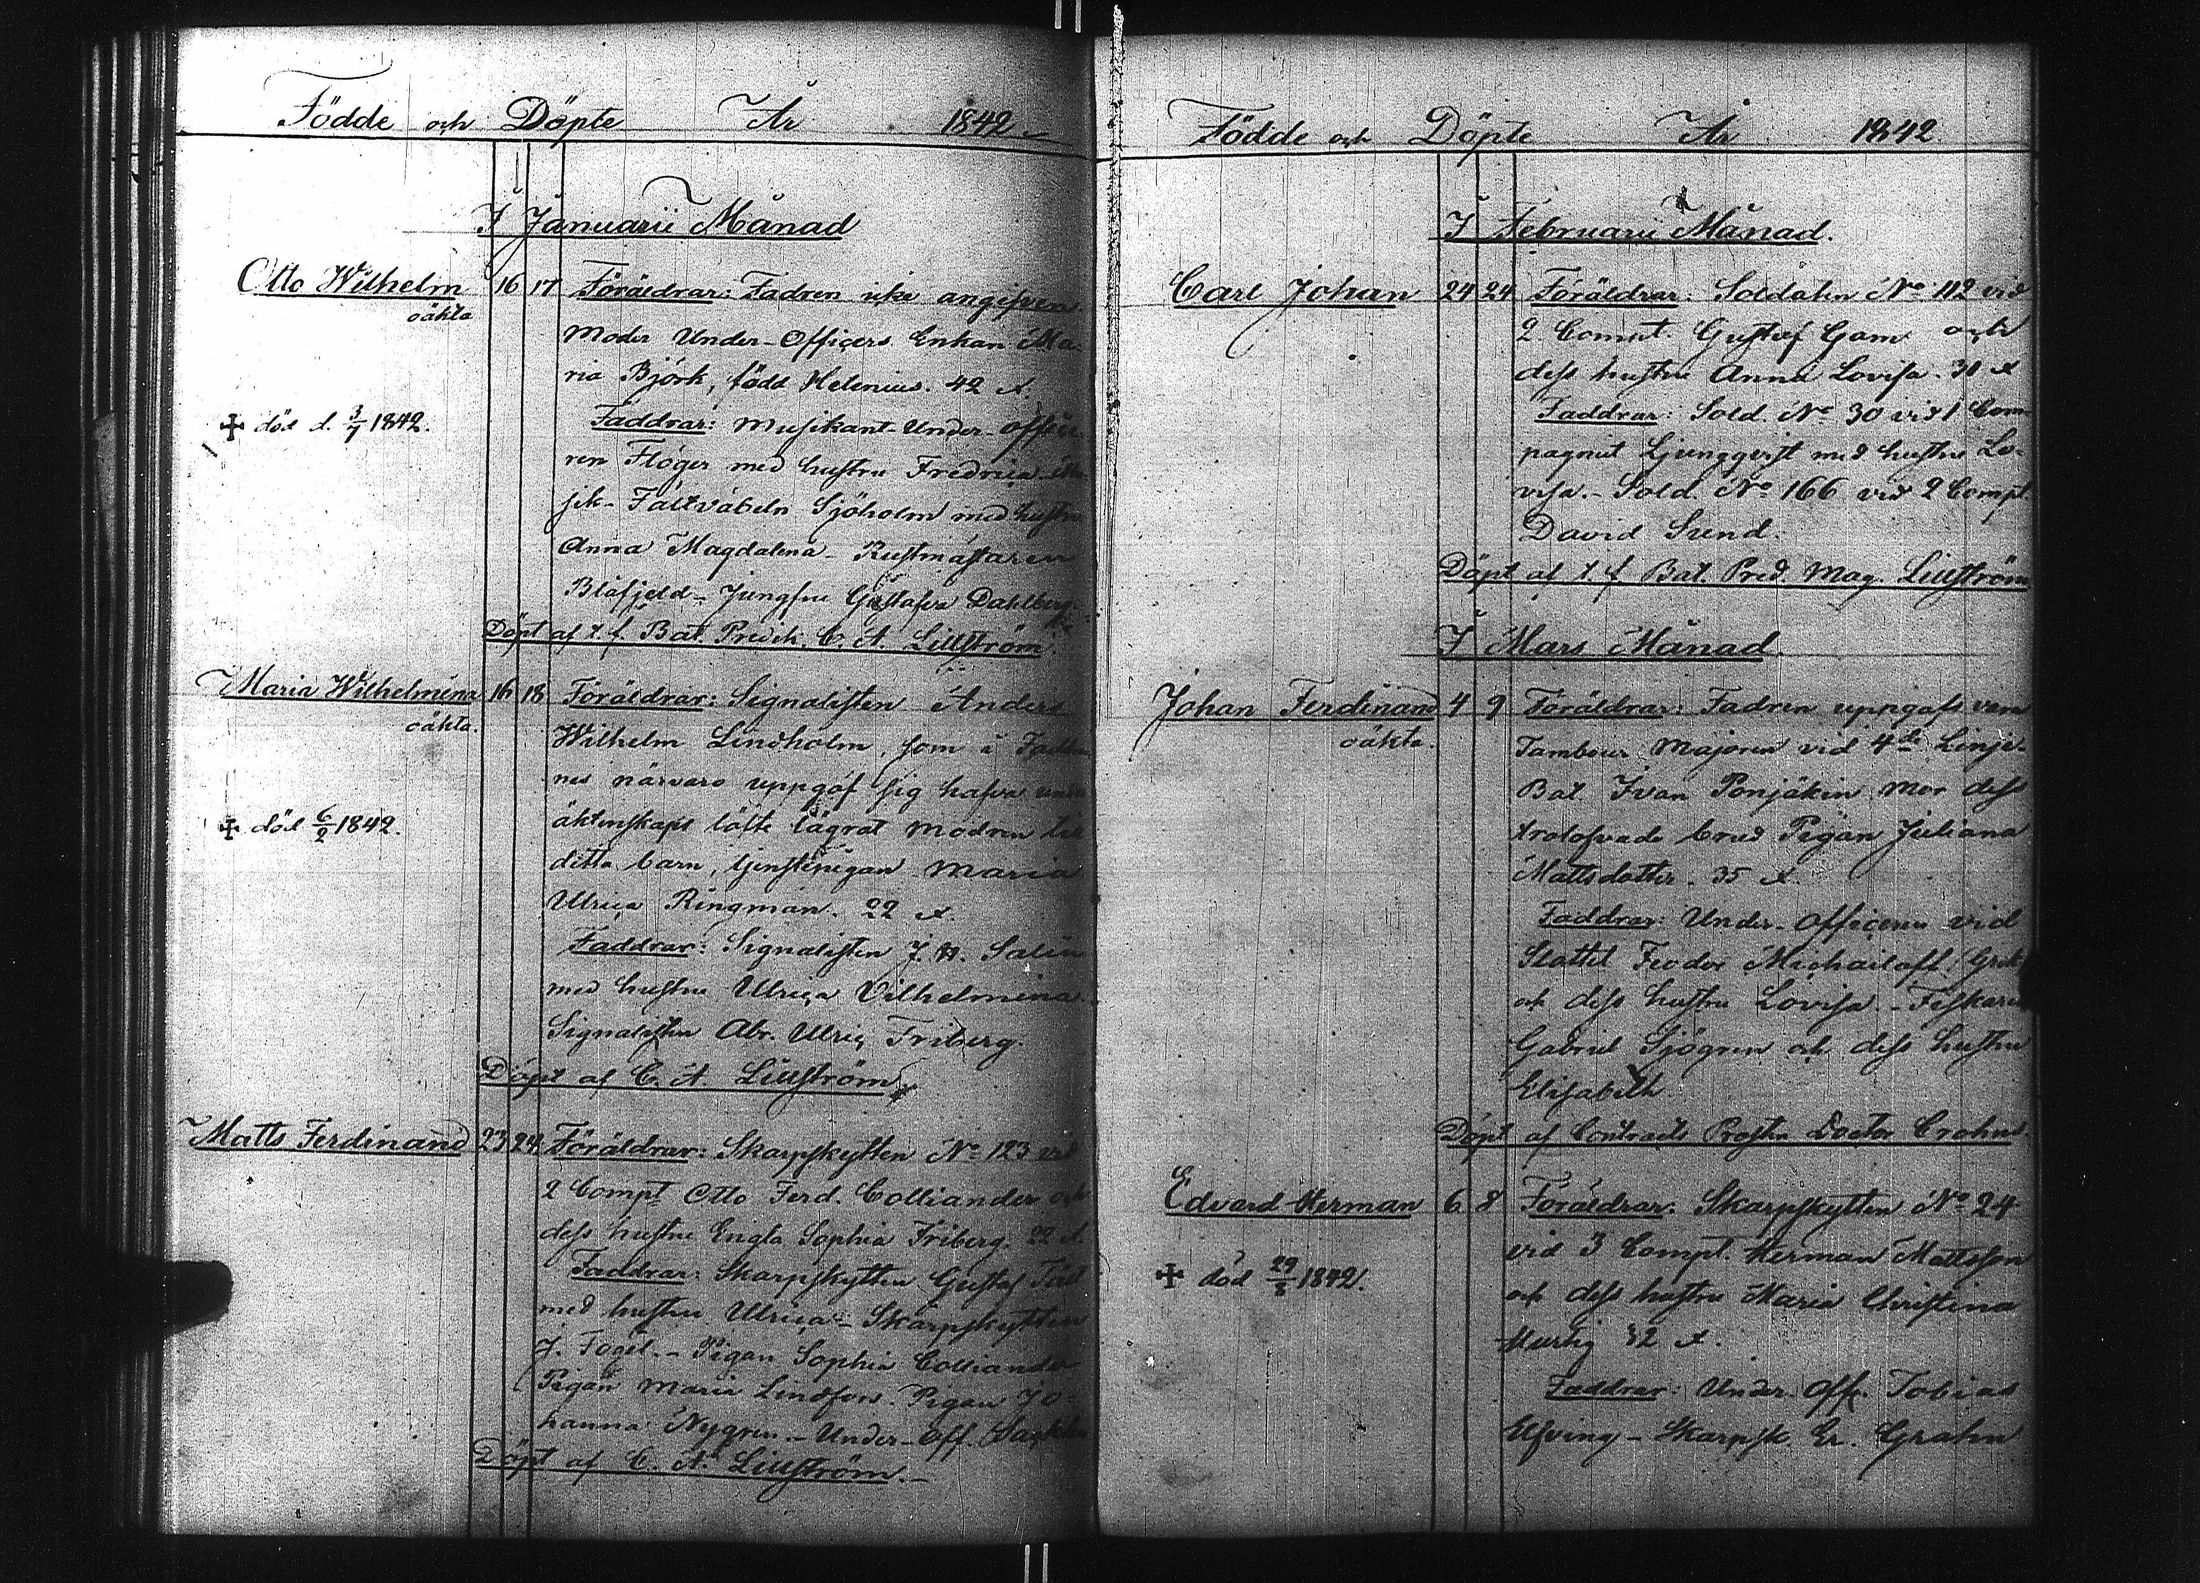 Födde och Döpte År 1842
I Januarii Månad
Otto Wilhelm 16 17 Föräldrar: Fadren icke angifven
oäkta
Moder Under-Officers Enkan Ma-
ria Björk, född Helenius. 42 Å.
Faddrar: Musikant-Under-Office-
✠ död d. 3/7 1842.
ren Flöger med hustru Fredrica
sik-Fältväbeln Sjöholm med hustru
Anna Magdalena - Rustmästaren
Blåfjeld - Jungfru Gustafva Dahlberg
Döpt af t. f. Bat. Predik. C. A. Liliström
Maria Wilhelmina 16 18 Föräldrar: Signalisten Anders
oäkta.
Wilhelm Lindholm, som i Fadder-
nes närvaro uppgaf sig hafva under
äktenskaps löfte lägrat modren till
✠ död 6/2 1842.
detta barn, tjenstepigan Maria
Ulrica Ringman. 22 Å.
Faddrar: Signalisten J. H. Salin
med hustru Ulrica Vilhelmina.
Signalisten Abr. Ulric Friberg.
Döpt af C. A. Liliström
Matts Ferdinand 23 24 Föräldrar: Skarpskytten No 123 vid
2 Compt Otto Ferd. Colliander och
dess hustru Engla Sophia Friberg. 22 Å.
Faddrar: Skarpskytten Gustaf
med hustru Ulrica - Skarpskytten
J. Fogel. - Pigan Sophia Colliander
Pigan Maria Lindfors. Pigan Jo-
hanna Nygren. - Under-Off.
Döpt af C. A. Liliström. -
Födde och Döpte År 1842.
I Februarii Månad.
Carl Johan 24 24 Föräldrar: Soldaten No 112 vid
2 Comnt. Gustaf Gam och
dess hustru Anna Lovisa. 30 Å
Faddrar: Sold. No 30 vid 1 Com-
pagniet Ljungqvist med hustru Lo-
visa. - Sold. No 166 vid 2 Compt.
David Sund.
Döpt af t. f. Bat. Pred. Mag. Liliström
I Mars Månad.
Johan Ferdinand 4 9 Föräldrar: Fadren uppgafs vara
oäkta.
Tambour Majoren vid 4de Linje-
Bat. Ivan Ponjäkin, mor dess
trolofvade brud Pigan Juliana
Mattsdotter. 35 Å.
Faddrar: Under-Officeren vid
Slottet Feodor Michailoff, Grek
och dess hustru Lovisa. - Fiskaren
Gabriel Sjögren och dess hustru
Elisabeth
Döpt af Contracts Prosten Doctor Crohn
Edvard Herman 6 8 Föräldrar: Skarpskytten No 24
vid 3 Compt. Herman Mattsson
✠ död 29/8 1842.
och dess hustru Maria Christina
Hurtig 32 Å.
Faddrar: Under Off. Tobias
Elfving - Skarpsk. Er. Grahn